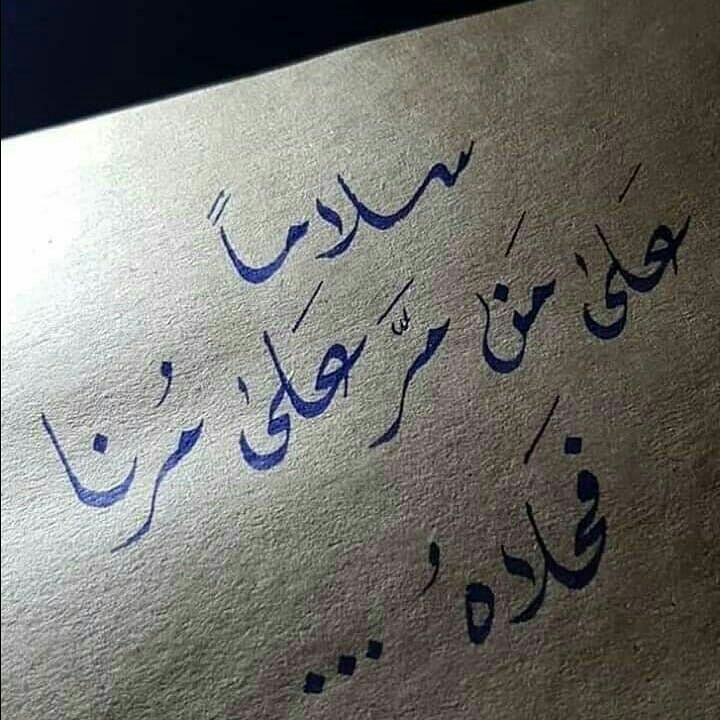 سلاماً
علىٰ مَن مرَّ علَىٰ مُرنا
فَحَلاهُ ...